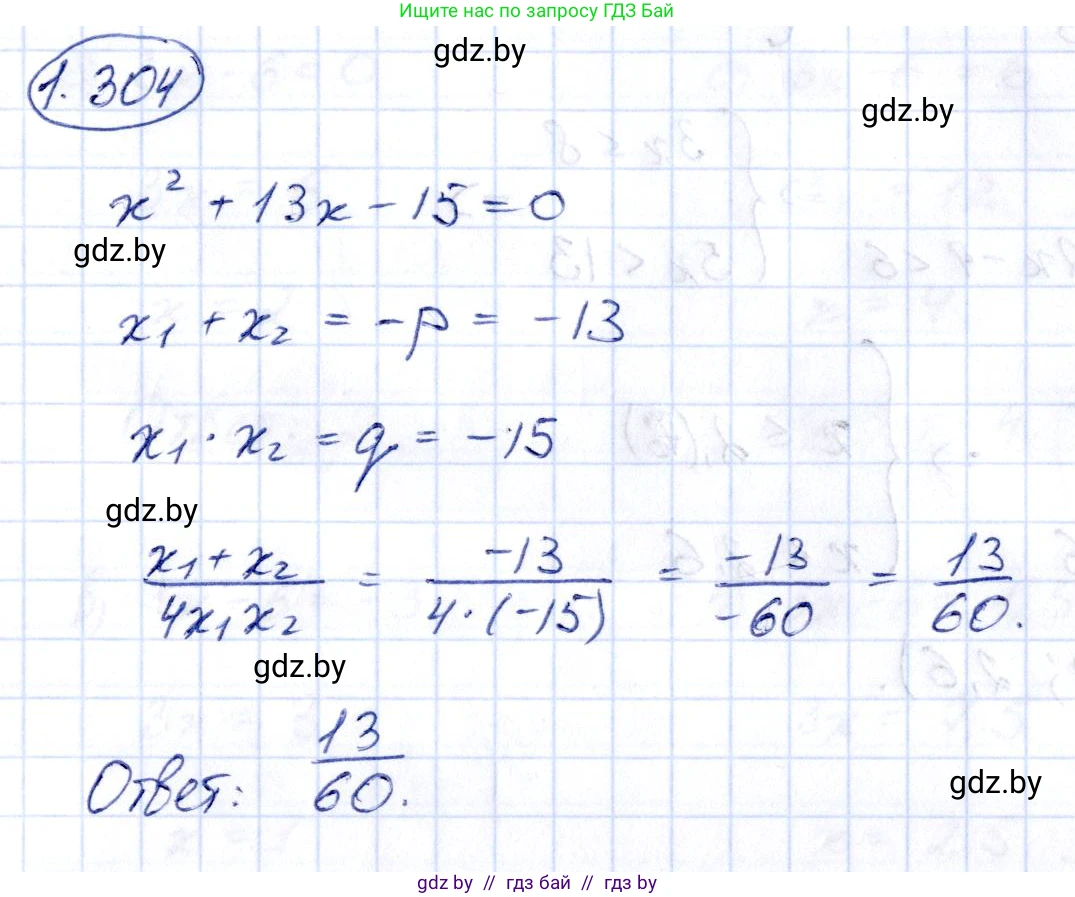 Ищите нас по запросу ГДЗ Бай
gdz.by
1.304
gdz.by
x² + 13x - 15 = 0
gdz.by
x₁ + x₂ = -p = -13
x₁ · x₂ = q = -15
gdz.by
(x₁ + x₂)/(4x₁x₂) = -13/(4·(-15)) = -13/-60 = 13/60.
gdz.by
Ответ: 13/60.
gdz.by
gdz by // гдз бай // gdz by